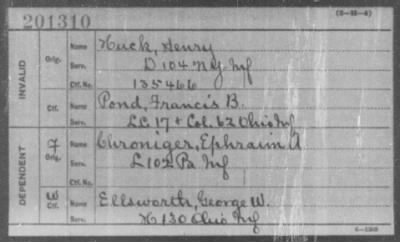 201310
(3-25-4)
INVALID
Orig.
Name Huck, Henry
Serv. D 104 N.Y. Inf
Ctf. No. 135466
Ctf.
Name Pond, Francis B.
Serv. Lt. 17 & Col. 62 Ohio Inf
DEPENDENT
Orig.
Name Chroniger, Ephraim A
Serv. L 102 Pa Inf
Ctf. No.
W
Ctf.
Name Ellsworth, George W.
Serv. H 130 Ohio Inf